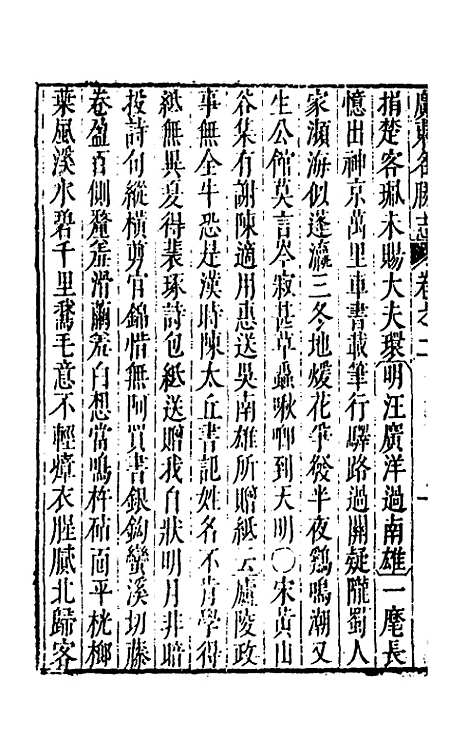 廣東名勝志 卷之二
捐楚客珮未賜大夫環〔明汪廣洋過南雄〕一麾長
憶出神京萬里車書載筆行驛路過關疑隴蜀人
家瀕海似蓬瀛三冬地煖花爭發半夜鷄鳴潮又
生公館莫言岑寂甚草蟲啾唧到天明○宋黃山
谷集有謝陳適用惠送吳南雄所贈紙云廬陵政
事無全牛恐是漢時陳太丘書記姓名不肯學得
紙無異夏得裴琢詩包紙送贈我自狀明月非暗
投詩句縱橫剪官錦惜無阿買書銀鈎蠻溪切藤
卷盈百側釐羞滑繭羞白想當鳴杵砧面平桄榔
葉風溪水碧千里鵞毛意不輕瘴衣腥膩北歸客